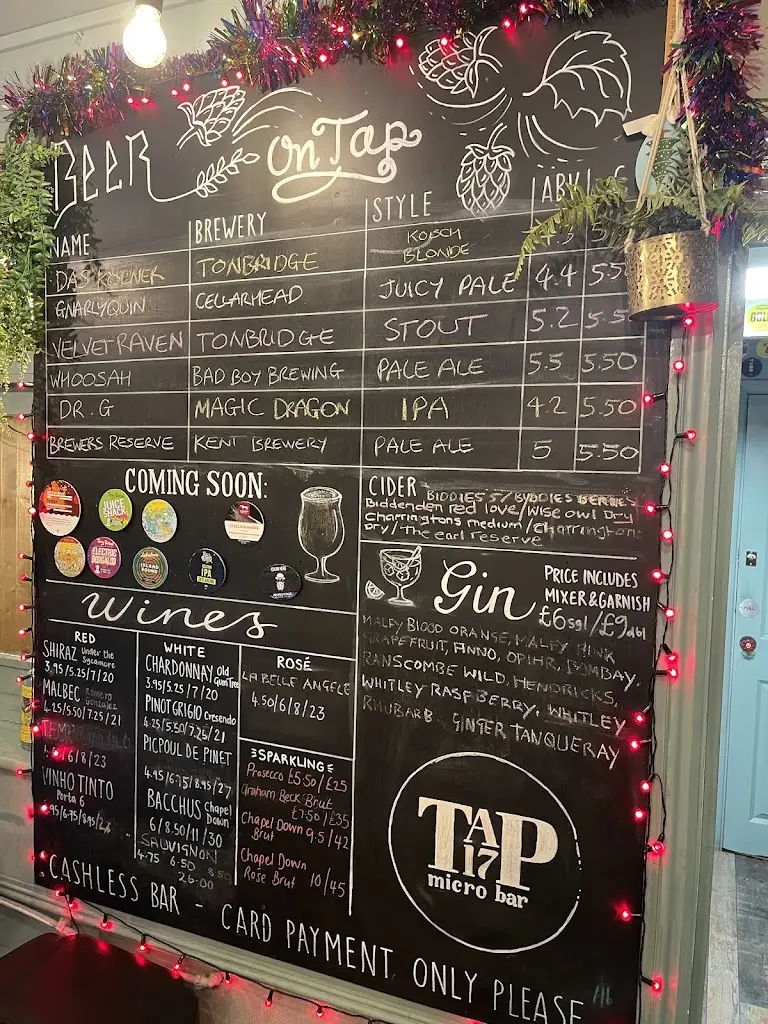 BEER on Tap
NAME BREWERY STYLE ABV
DAS KOLNER TONBRIDGE KOLSCH BLONDE
GNARLYQUIN CELLARHEAD JUICY PALE 4.4 5.50
VELVET RAVEN TONBRIDGE STOUT 5.2 5.5
WHOOSAH BAD BOY BREWING PALE ALE 5.5 5.50
DR.G MAGIC DRAGON IPA 4.2 5.50
BREWERS RESERVE KENT BREWERY PALE ALE 5 5.50
COMING SOON:
JUICE SHACK
ELECTRIC
ISLAND
IPA
CIDER BIDDIES 5/ BYDDIES BERRIES
Biddenden red love/Wise owl Dry
Charringtons medium/Charringtons
Dry/The earl reserve
Gin
PRICE INCLUDES
MIXER & GARNISH
£6 sgl/£9 dbl
MALFY BLOOD ORANGE, MALFY PINK
GRAPEFRUIT, ANNO, OPIHR, BOMBAY,
RANSCOMBE WILD, HENDRICKS,
WHITLEY RASPBERRY, WHITLEY
RHUBARB GINGER TANQUERAY
Wines
RED
SHIRAZ Under the Sycamore
3.95/5.25/7/20
MALBEC Romero Gonzalez
4.25/5.50/7.25/21
6/8/23
VINHO TINTO
Porta 6
WHITE
CHARDONNAY Old Gum Tree
3.95/5.25/7/20
PINOT GRIGIO Cresendo
4.25/5.50/7.25/21
PICPOUL DE PINET
4.95/6.75/8.95/27
BACCHUS Chapel Down
6/8.50/11/30
SAUVIGNON
4.75 6.50 8.50
26.00
ROSÉ
LA BELLE ANGELE
4.50/6/8/23
SPARKLING
Prosecco £5.50/£25
Graham Beck Brut
£7.50/£35
Chapel Down 9.5/42
Brut
Chapel Down
Rose Brut 10/45
TAP
17
micro bar
CASHLESS BAR - CARD PAYMENT ONLY PLEASE